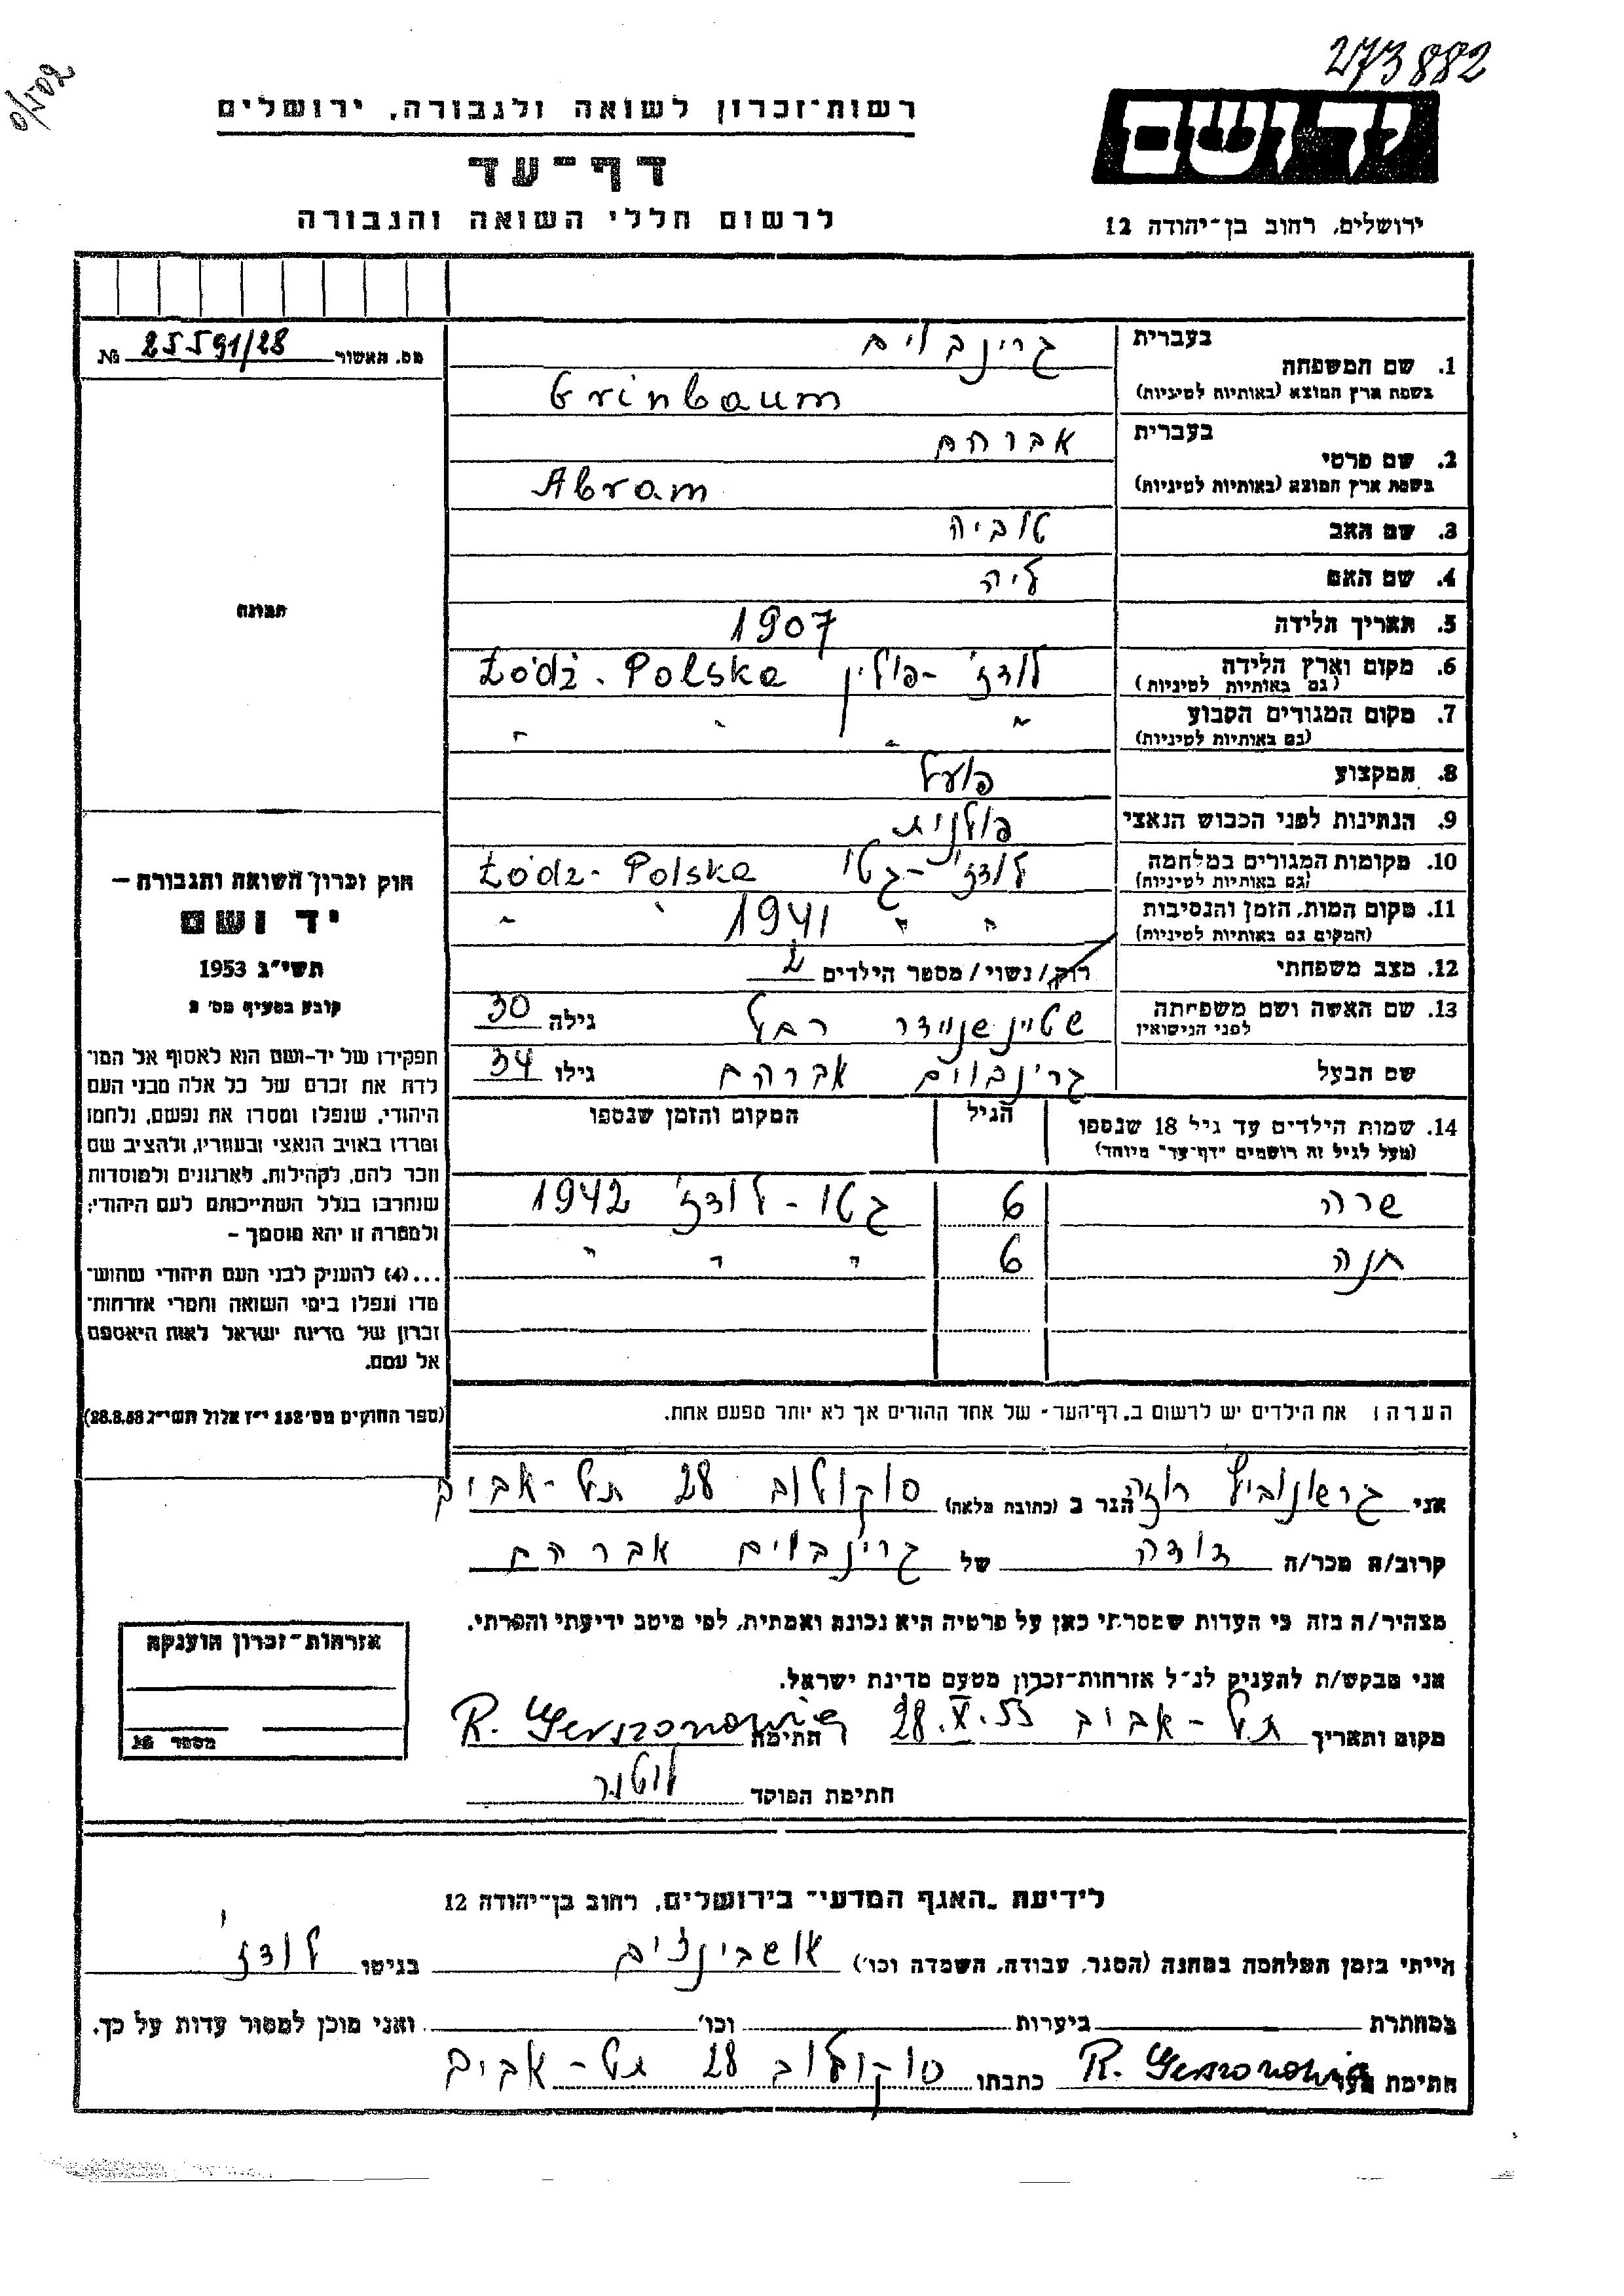 273882
0/202
רשות־זכרון לשואה ולגבורה, ירושלים
דף־עד
לרשום חללי השואה והגבורה
יד ושם
ירושלים, רחוב בן־יהודה 12
מס. תאשור 25591/28 №
תמונה
בעברית גרינבוים
1. שם המשפחה
בשפת ארץ המוצא (באותיות לטיניות) Grinbaum
בעברית אברהם
2. שם פרטי
בשפת ארץ המוצא (באותיות לטיניות) Abram
3. שם האב טוביה
4. שם האם ליה
5. תאריך הלידה 1907
6. מקום וארץ הלידה לודז' - פולין Łódź - Polska
(גם באותיות לטיניות)
7. מקום המגורים הקבוע " " " "
(גם באותיות לטיניות)
8. המקצוע פועל
9. הנתינות לפני הכבוש הנאצי פולנית
10. מקומות המגורים במלחמה לודז' - גטו Łódz - Polska
(גם באותיות לטיניות)
11. מקום המות, הזמן והנסיבות " " 1941 " "
(המקום גם באותיות לטיניות)
12. מצב משפחתי רוק/נשוי/מספר הילדים 2
13. שם האשה ושם משפחתה שטיינשניידר רחל גילה 30
לפני הנישואין
שם הבעל גרינבוים אברהם גילו 34
14. שמות הילדים עד גיל 18 שנספו הגיל המקום והזמן שנספו
(מעל לגיל זה רושמים "דף־עד" מיוחד)
שרה 6 גטו - לודז' 1942
חנה 6 " " "
הערה: את הילדים יש לרשום ב„דף־העד" של אחד ההורים אך לא יותר מפעם אחת.
חוק זכרון השואה והגבורה –
יד ושם
תשי"ג 1953
קובע בסעיף מס' 2
תפקידו של יד-ושם הוא לאסוף אל המו־
לדת את זכרם של כל אלה מבני העם
היהודי, שנפלו ומסרו את נפשם, נלחמו
ומרדו באויב הנאצי ובעוזריו, ולהציב שם
וזכר להם, לקהילות, לארגונים ולמוסדות
שנחרבו בגלל השתייכותם לעם היהודי;
ולמטרה זו יהא מוסמך –
...(4) להעניק לבני העם היהודי שהוש־
מדו ונפלו בימי השואה והמרי אזרחות־
זכרון של מדינת ישראל לאות היאספם
אל עמם.
(ספר החוקים מס' 132 י"ז אלול תשי"ג 28.8.53)
אני גרשונוביץ רוזה הגר ב (כתובת מלאה) סוקולוב 28 תל-אביב
קרוב/ה מכר/ה דודה של גרינבוים אברהם
מצהיר/ה בזה כי העדות שמסרתי כאן על פרטיה היא נכונה ואמתית, לפי מיטב ידיעתי והכרתי.
אני מבקש/ת להעניק לנ"ל אזרחות־זכרון מטעם מדינת ישראל.
מקום ותאריך תל-אביב 28.X.55 חתימה R. Gerszonowicz
חתימת הפוקד
אזרחות־זכרון הוענקה
מספר №
לידיעת „האגף המדעי" בירושלים, רחוב בן־יהודה 12
הייתי בזמן המלחמה במחנה (הסגר, עבודה, השמדה וכו') אושבינצ'ים בגיטו לודז'
במחתרת ביערות וכו' ואני מוכן למסור עדות על כך.
חתימת העד R. Gerszonowicz כתבתו סוקולוב 28 תל-אביב